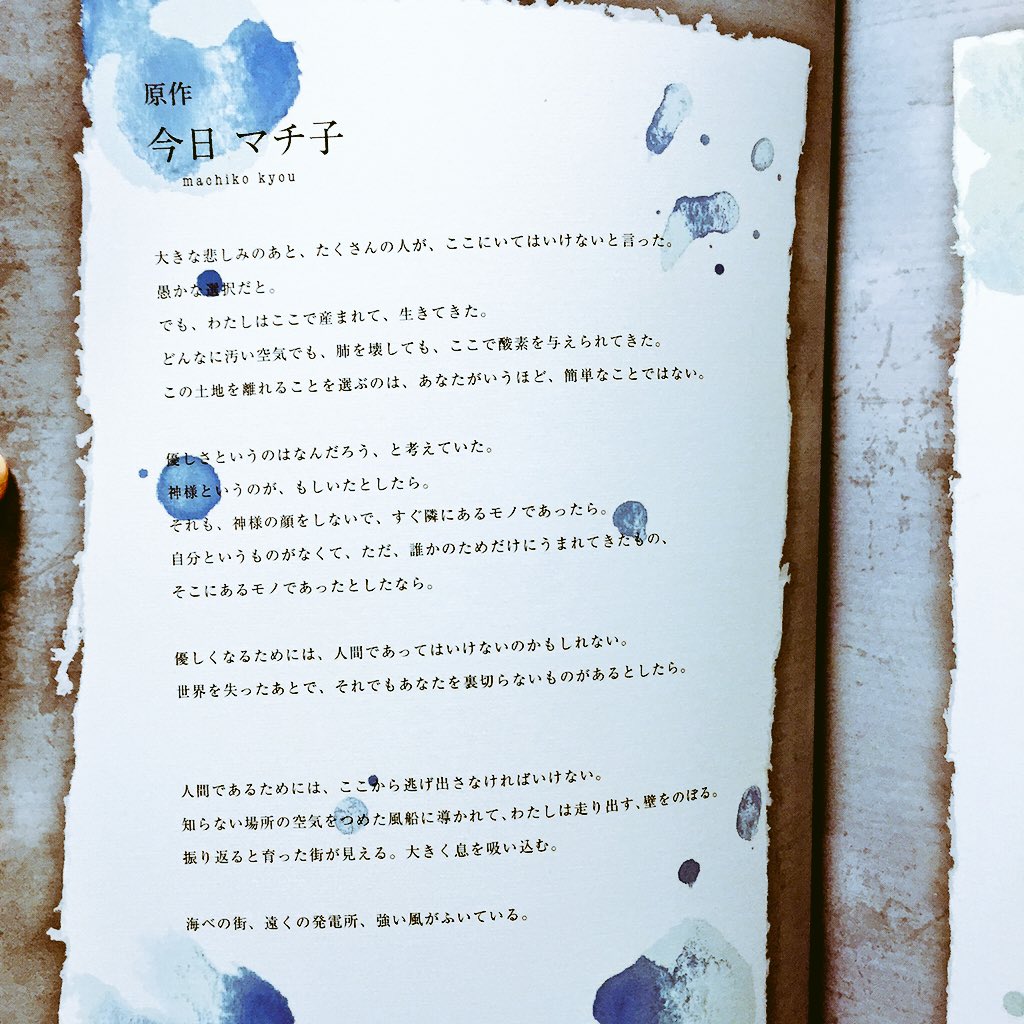 原作
今日 マチ子
machiko kyou
大きな悲しみのあと、たくさんの人が、ここにいてはいけないと言った。
愚かな選択だと。
でも、わたしはここで産まれて、生きてきた。
どんなに汚い空気でも、肺を壊しても、ここで酸素を与えられてきた。
この土地を離れることを選ぶのは、あなたがいうほど、簡単なことではない。
優しさというのはなんだろう、と考えていた。
神様というのが、もしいたとしたら。
それも、神様の顔をしないで、すぐ隣にあるモノであったら。
自分というものがなくて、ただ、誰かのためだけにうまれてきたもの、
そこにあるモノであったとしたなら。
優しくなるためには、人間であってはいけないのかもしれない。
世界を失ったあとで、それでもあなたを裏切らないものがあるとしたら。
人間であるためには、ここから逃げ出さなければいけない。
知らない場所の空気をつめた風船に導かれて、わたしは走り出す、壁をのぼる。
振り返ると育った街が見える。大きく息を吸い込む。
海べの街、遠くの発電所、強い風がふいている。